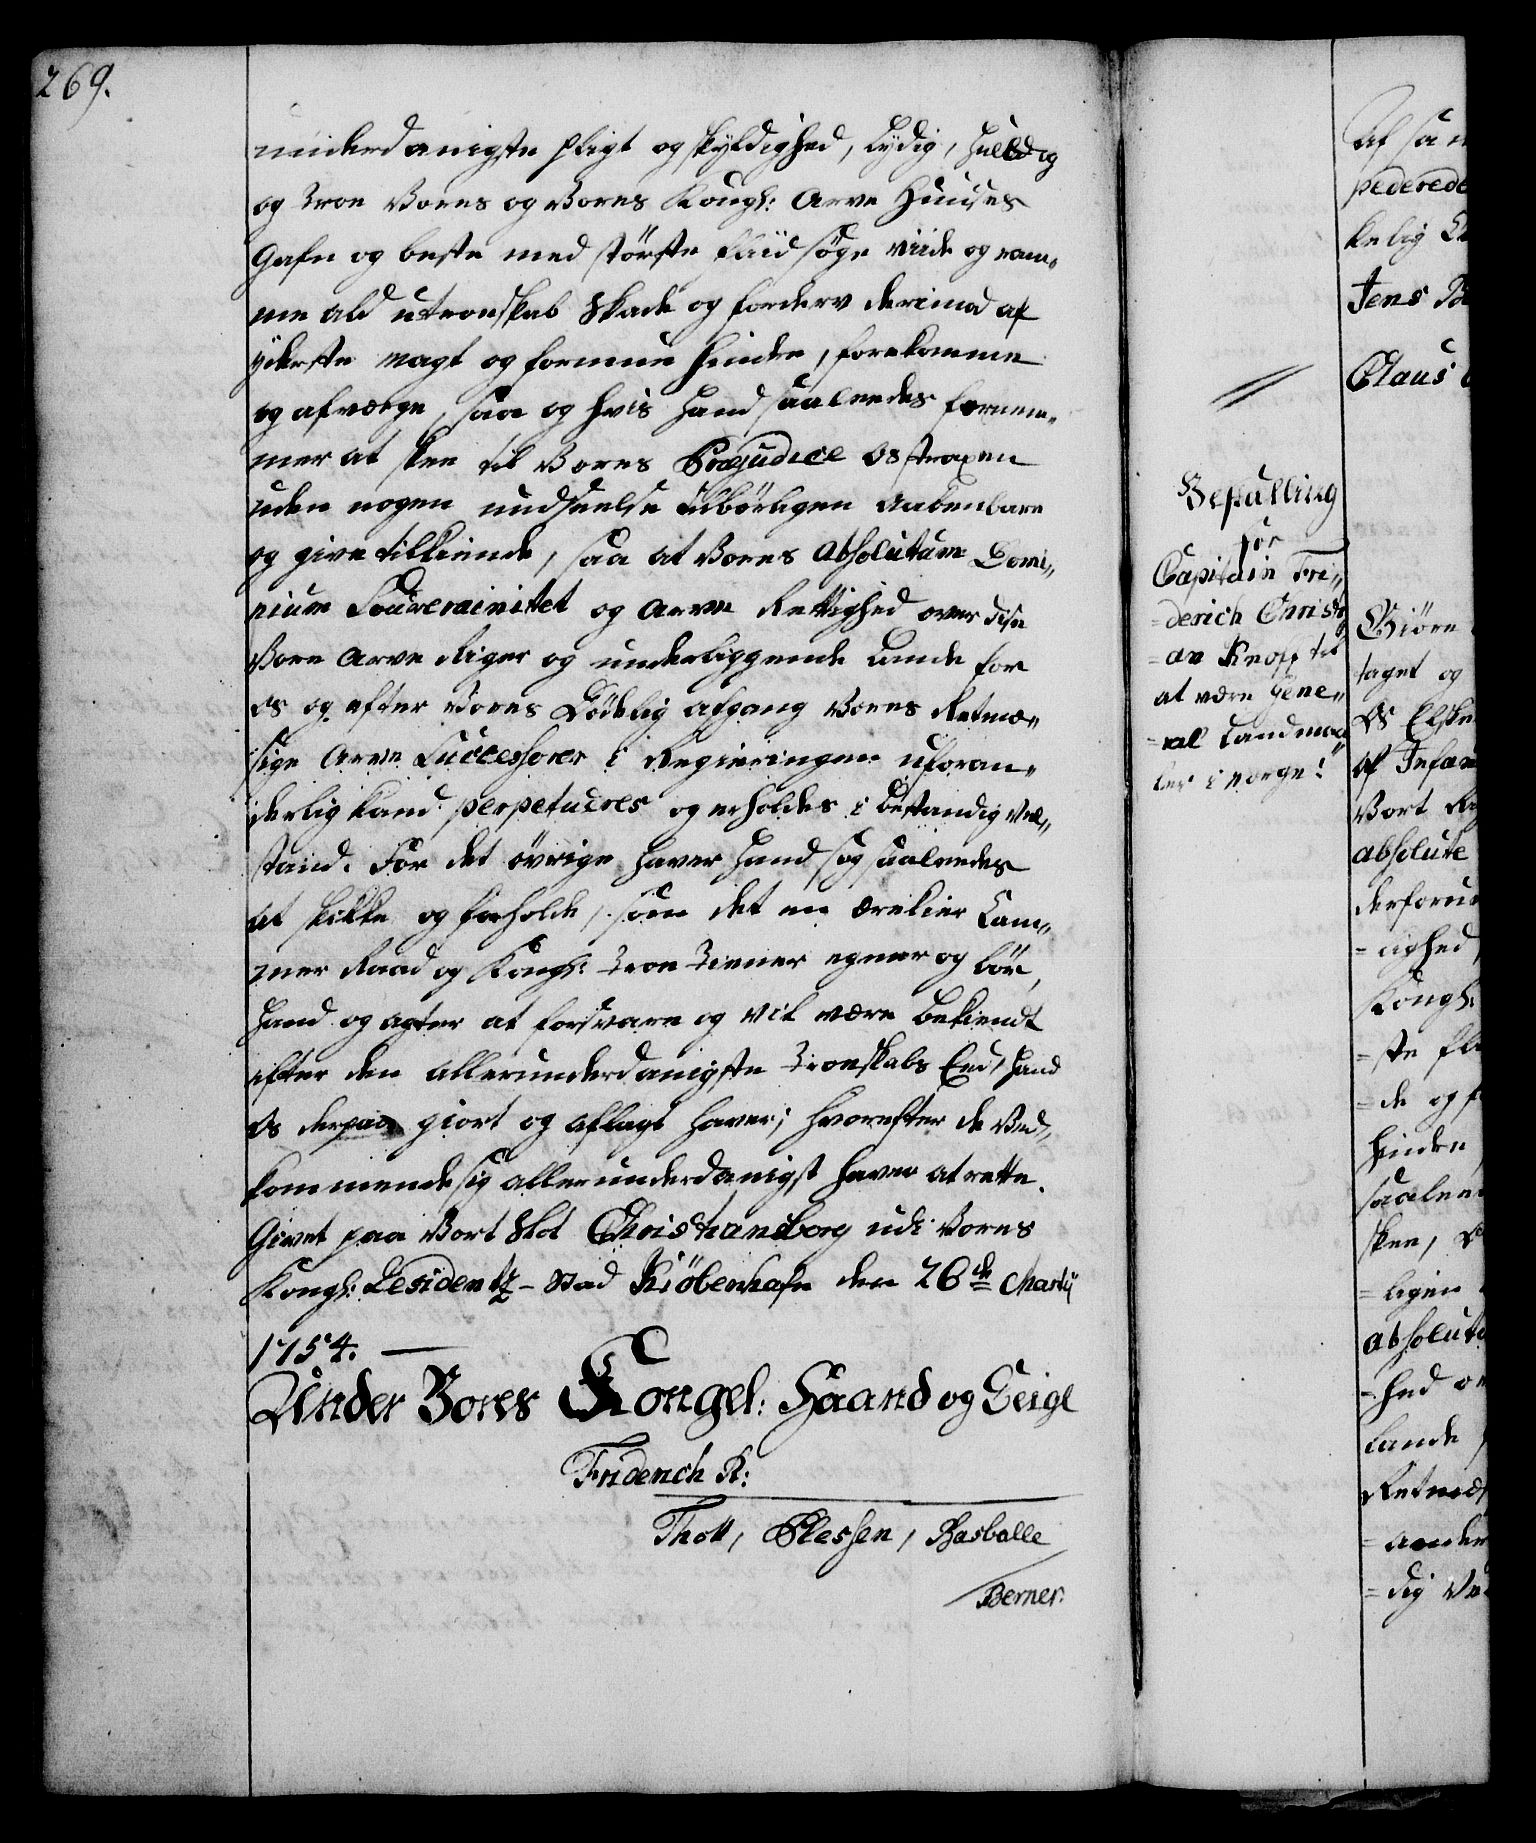 269.
underdanigste Pligt og skyldighed, Lydig, huldig
og Troe Vores og Vores Kongl: Arve Huuses
Gafn og beste med störste fliid söge viide og ram„
me ald utroeskab Skade og forderv derimod af
yderste magt og formue hindre, forekomme
og afværge, saa og hvis hand saaleedes fornem„
mer at skee til Vores Præjudice Os straxen
uden nogen undseelse tilbörligen Aabenbare
og give tilkiende, saa at Vores Absolutum Domi„
nium Souverainitet og Arve Rettighed over disse
Vore Arve Riger og underliggende Lande for
Os og efter Vores Dödelig afgang Vores Retmæ„
sige Arve Successorer i Regieringen uforan„
derlig kand perpetueres og erholdes i bestandig Vel„
stand. For det övrige haver hand sig saaledes
at skikke og forholde, som det en ærekier Cam„
mer Raad og Kongl: Troe Tiener egner og bör,
hand og agter at forsvare og vil være bekiendt
efter den allerunderdanigste Troeskabs Eed, hand
Os derpaa giort og aflagt haver; hvorefter de Ved„
kommende sig allerunderdanigst haver at rette.
Givet paa Vort Slot Christiansborg udi Vores
Kongl: Residentz-Stad Kiöbenhafn den 26de Martij
1754.
Under Vores Kongel: Haand og Seigl
Friderich R:
Thott, Plessen, Rasballe
Berner.
Bestalling
for
Capitain Fri„
-derich Christi
-an Knoff til
at være Gene„
-ral Landmaa„
ler i Norge!
Af sa
pederede
kelig
Jens
Claus
Giöre
taget og
Os Elske
af Infan
Vort
absolute
derforu
-ighed,
Kongl:
-ste fli
-de og f
hindre,
saalee
skee,
-ligen
absolut
-hed o
Lande
Retmæs
-ander
-dig Ve